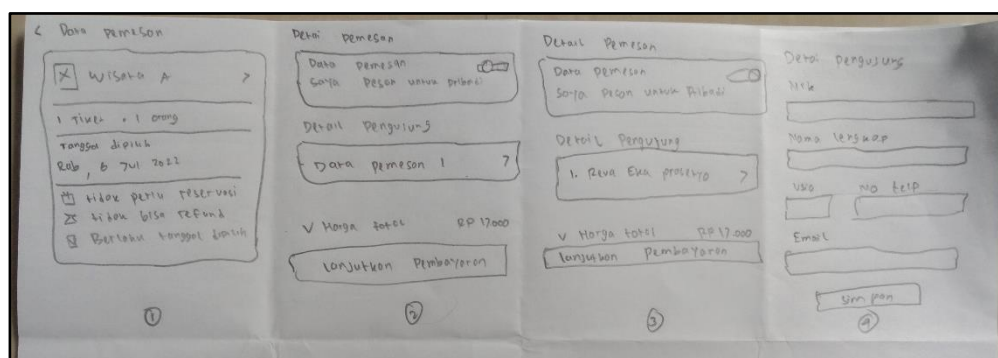 < Data Pemesan
X Wisata A >
1 Tiket . 1 orang
Tanggal dipilih
Rab, 6 Jul 2022
tidak perlu reservasi
tidak bisa refund
Berlaku tanggal dipilih
1
Detai Pemesan
Data Pemesan
Saya Pesan untuk Pribadi
Detail Pengunjung
Data Pemesan 1 >
V Harga total RP 17.000
Lanjutkan Pembayaran
2
Detail Pemesan
Data Pemesan
Saya Pesan untuk Pribadi
Detail Pengunjung
1. Reva Eka Prasetyo >
V Harga total RP 17.000
Lanjutkan Pembayaran
3
Detai Pengunjung
Nama Lengkap
Usia No telp
Email
simpan
4